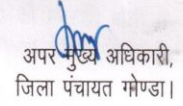 अपर मुख्य अधिकारी,
जिला पंचायत गोण्डा।